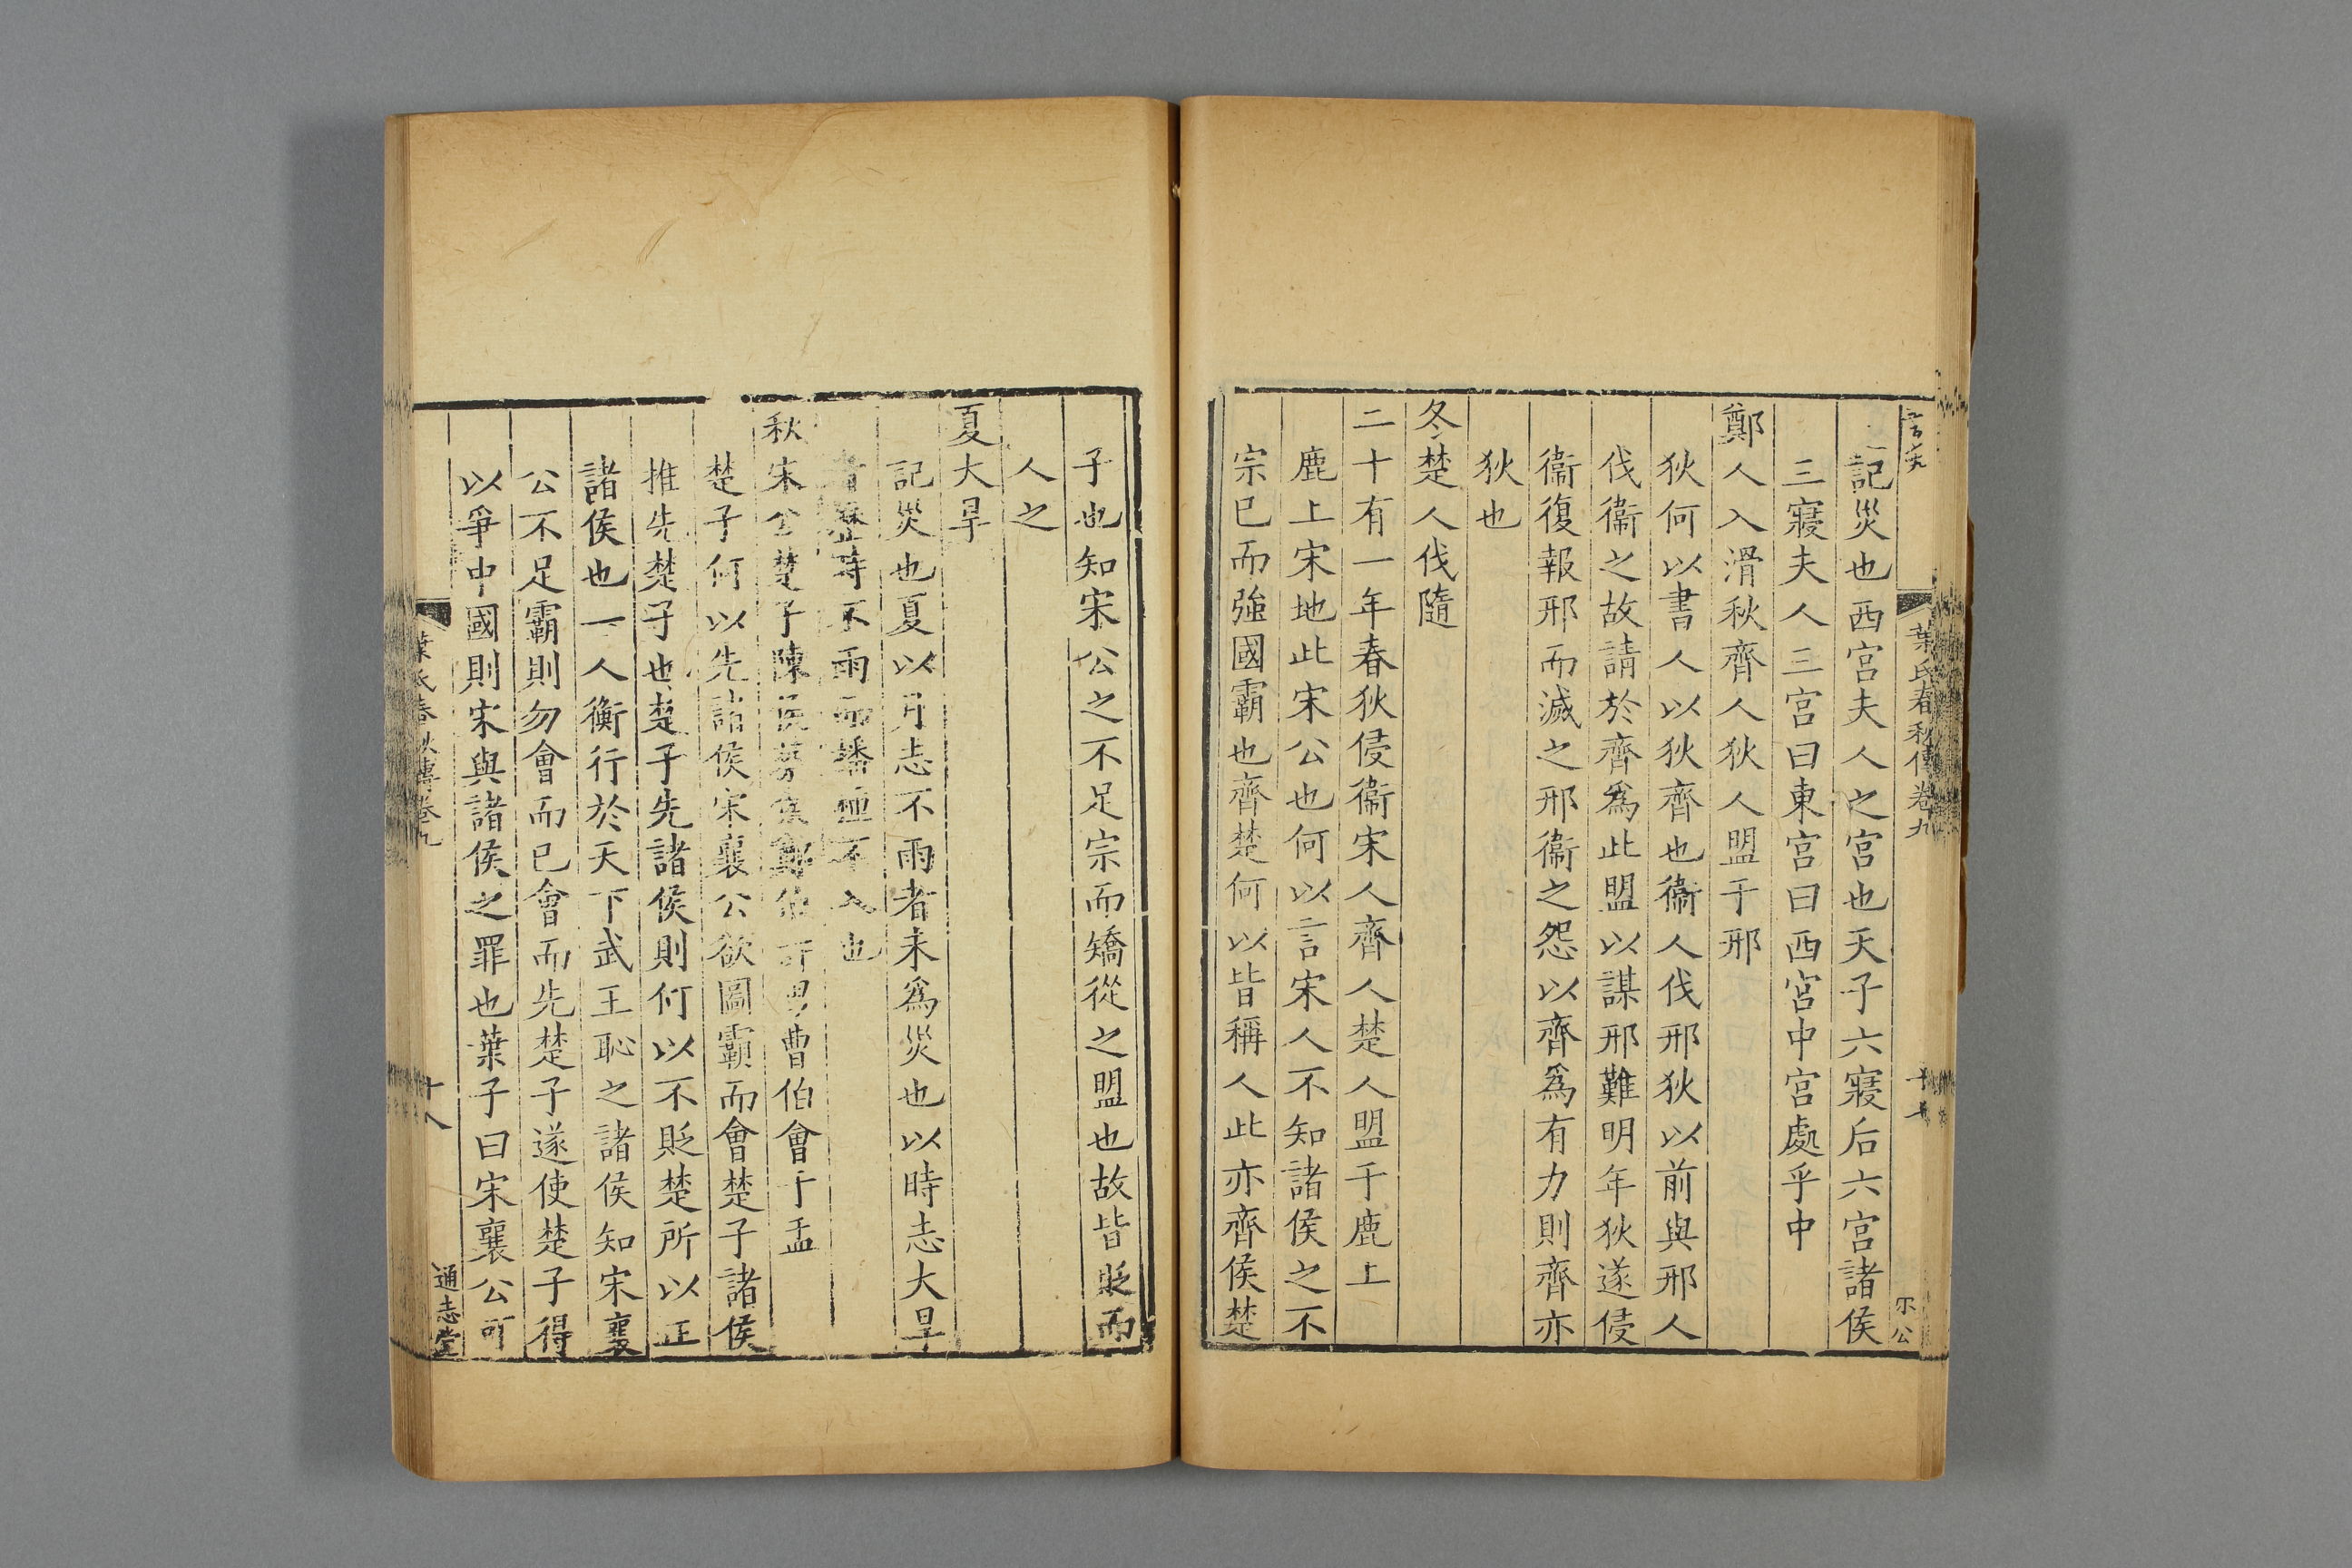 葉氏春秋傳卷九
記災也西宮夫人之宮也天子六寢后六宮諸侯
三寢夫人三宮曰東宮曰西宮中宮處乎中
鄭人入滑秋齊人狄人盟于邢
狄何以書人以狄齊也衞人伐邢狄以前與邢人
伐衞之故請於齊爲此盟以謀邢難明年狄遂侵
衞復報邢而滅之邢衞之怨以齊爲有力則齊亦
狄也
冬楚人伐隨
二十有一年春狄侵衞宋人齊人楚人盟于鹿上
鹿上宋地此宋公也何以言宋人不知諸侯之不
宗已而強國霸也齊楚何以皆稱人此亦齊侯楚
子也知宋公之不足宗而矯從之盟也故皆貶而
人之
夏大旱
記災也夏以月志不雨者未爲災也以時志大旱
時不雨而播種不入也
秋宋公楚子陳侯蔡侯鄭伯許男曹伯會于盂
楚子何以先諸侯宋襄公欲圖霸而會楚子諸侯
推先楚子也楚子先諸侯則何以不貶楚所以正
諸侯也一人衡行於天下武王恥之諸侯知宋襄
公不足霸則勿會而已會而先楚子遂使楚子得
以爭中國則宋與諸侯之罪也葉子曰宋襄公可
葉氏春秋傳卷九
十八
通志堂